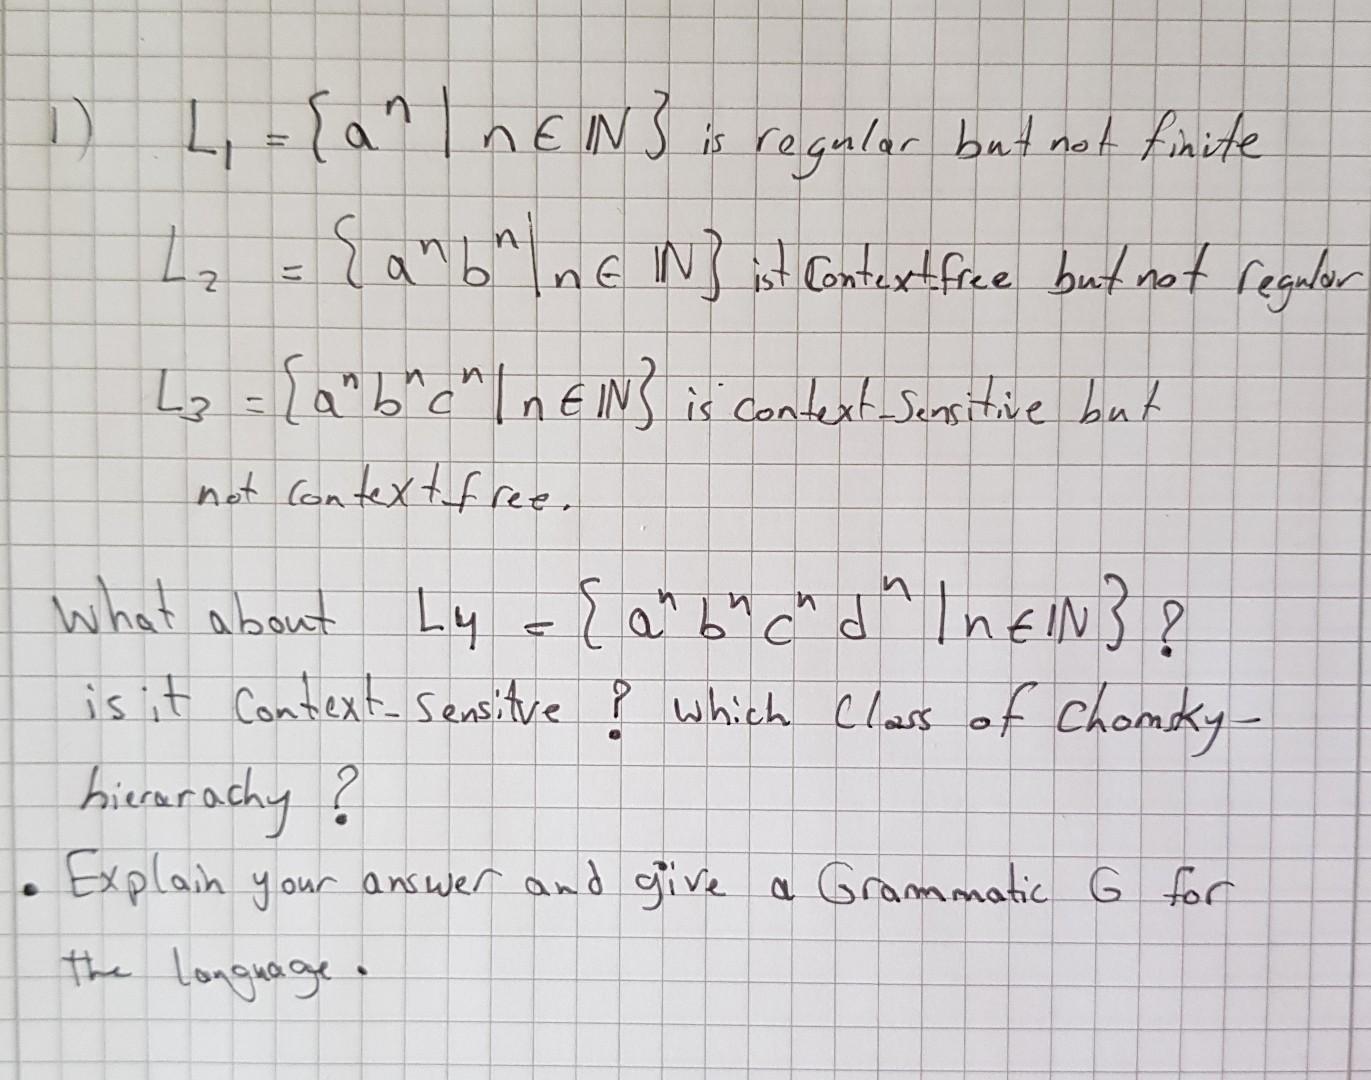 1) L₁ = {aⁿ | n ∈ ℕ} is regular but not finite
L₂ = {aⁿbⁿ | n ∈ ℕ} ist Context-free but not regular
L₃ = {aⁿbⁿcⁿ | n ∈ ℕ} is context-sensitive but
not context-free.
What about L4 = {aⁿ bⁿ cⁿ dⁿ | n ∈ ℕ} ?
is it Context-sensitve ? which Class of Chomsky-
hierarachy ?
• Explain your answer and give a Grammatic G for
the language.